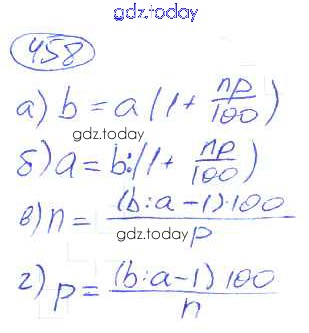 gdz.today
458
а) b = a (1 + np/100)
gdz.today
б) a = b:(1 + np/100)
в) n = (b:a-1)·100/p
gdz.today
г) p = (b:a-1) 100/n